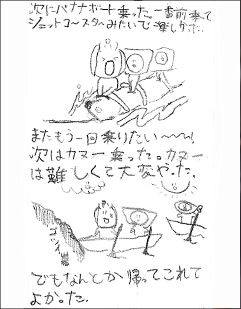 次にバナナボート乗った。一番前乗って
ジェットコースターみたいで楽しかった。
またもう一回乗りたい〜〜!
次はカヌー乗った。カヌー
は難しくて大変やった。
ゴツン
でもなんとか帰ってこれて
よかった。